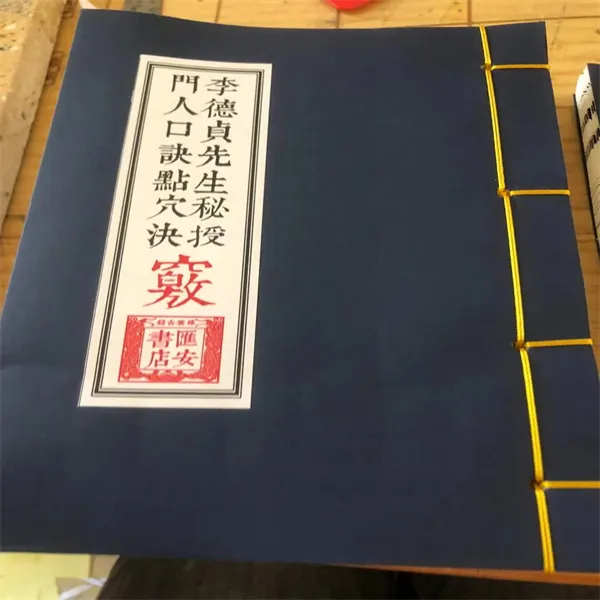 李德貞先生秘授
門人口訣點穴決
竅
匯安
書店